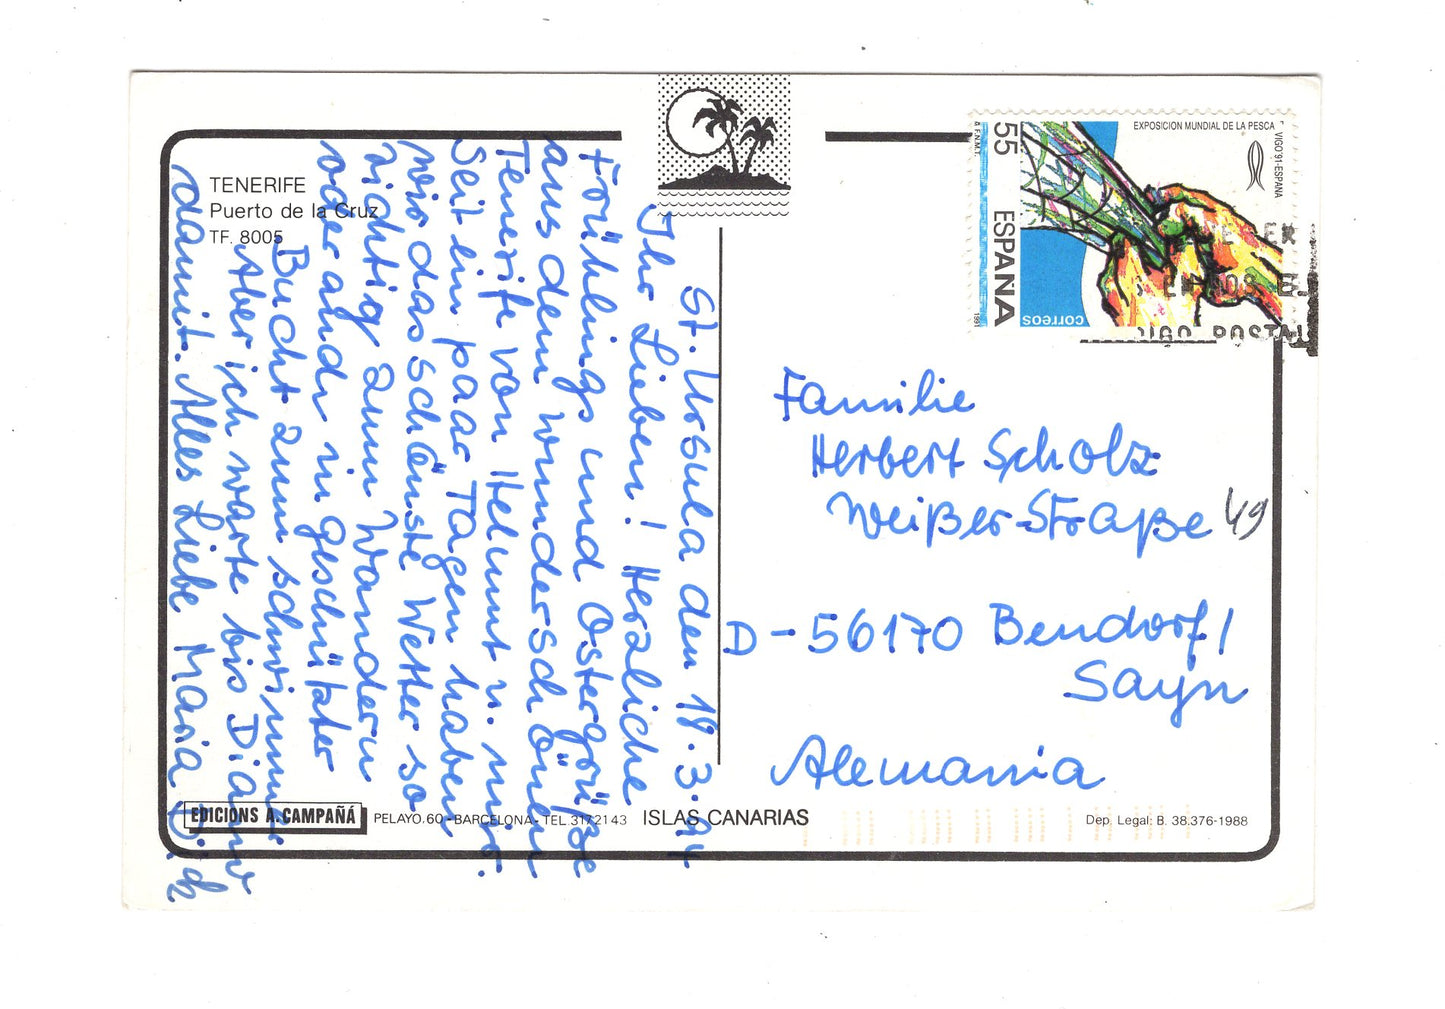 TENERIFE
Puerto de la Cruz
TF. 8005
St. Ursula den 18.3.94
Ihr Lieben! Herzliche
Frühlings und Ostergrüße
aus dem wunderschönen
Tenerife von Helmut u. mir.
Seit ein paar Tagen haben
wir das schönste Wetter so
richtig zum Wandern
oder auch in geschützter
Bucht zum schwimmen
Aber ich warte bis Diana
damit. Alles Liebe Maria
EXPOSICION MUNDIAL DE LA PESCA
VIGO'91-ESPAÑA
55
& F.N.M.T.
ESPAÑA
correos
1991
Familie
Herbert Scholz
Weißer-Straße 49
D-56170 Bendorf/
Sayn
Alemania
EDICIONS A. CAMPAÑÁ
PELAYO, 60 - BARCELONA - TEL. 3172143
ISLAS CANARIAS
Dep. Legal: B. 38.376-1988